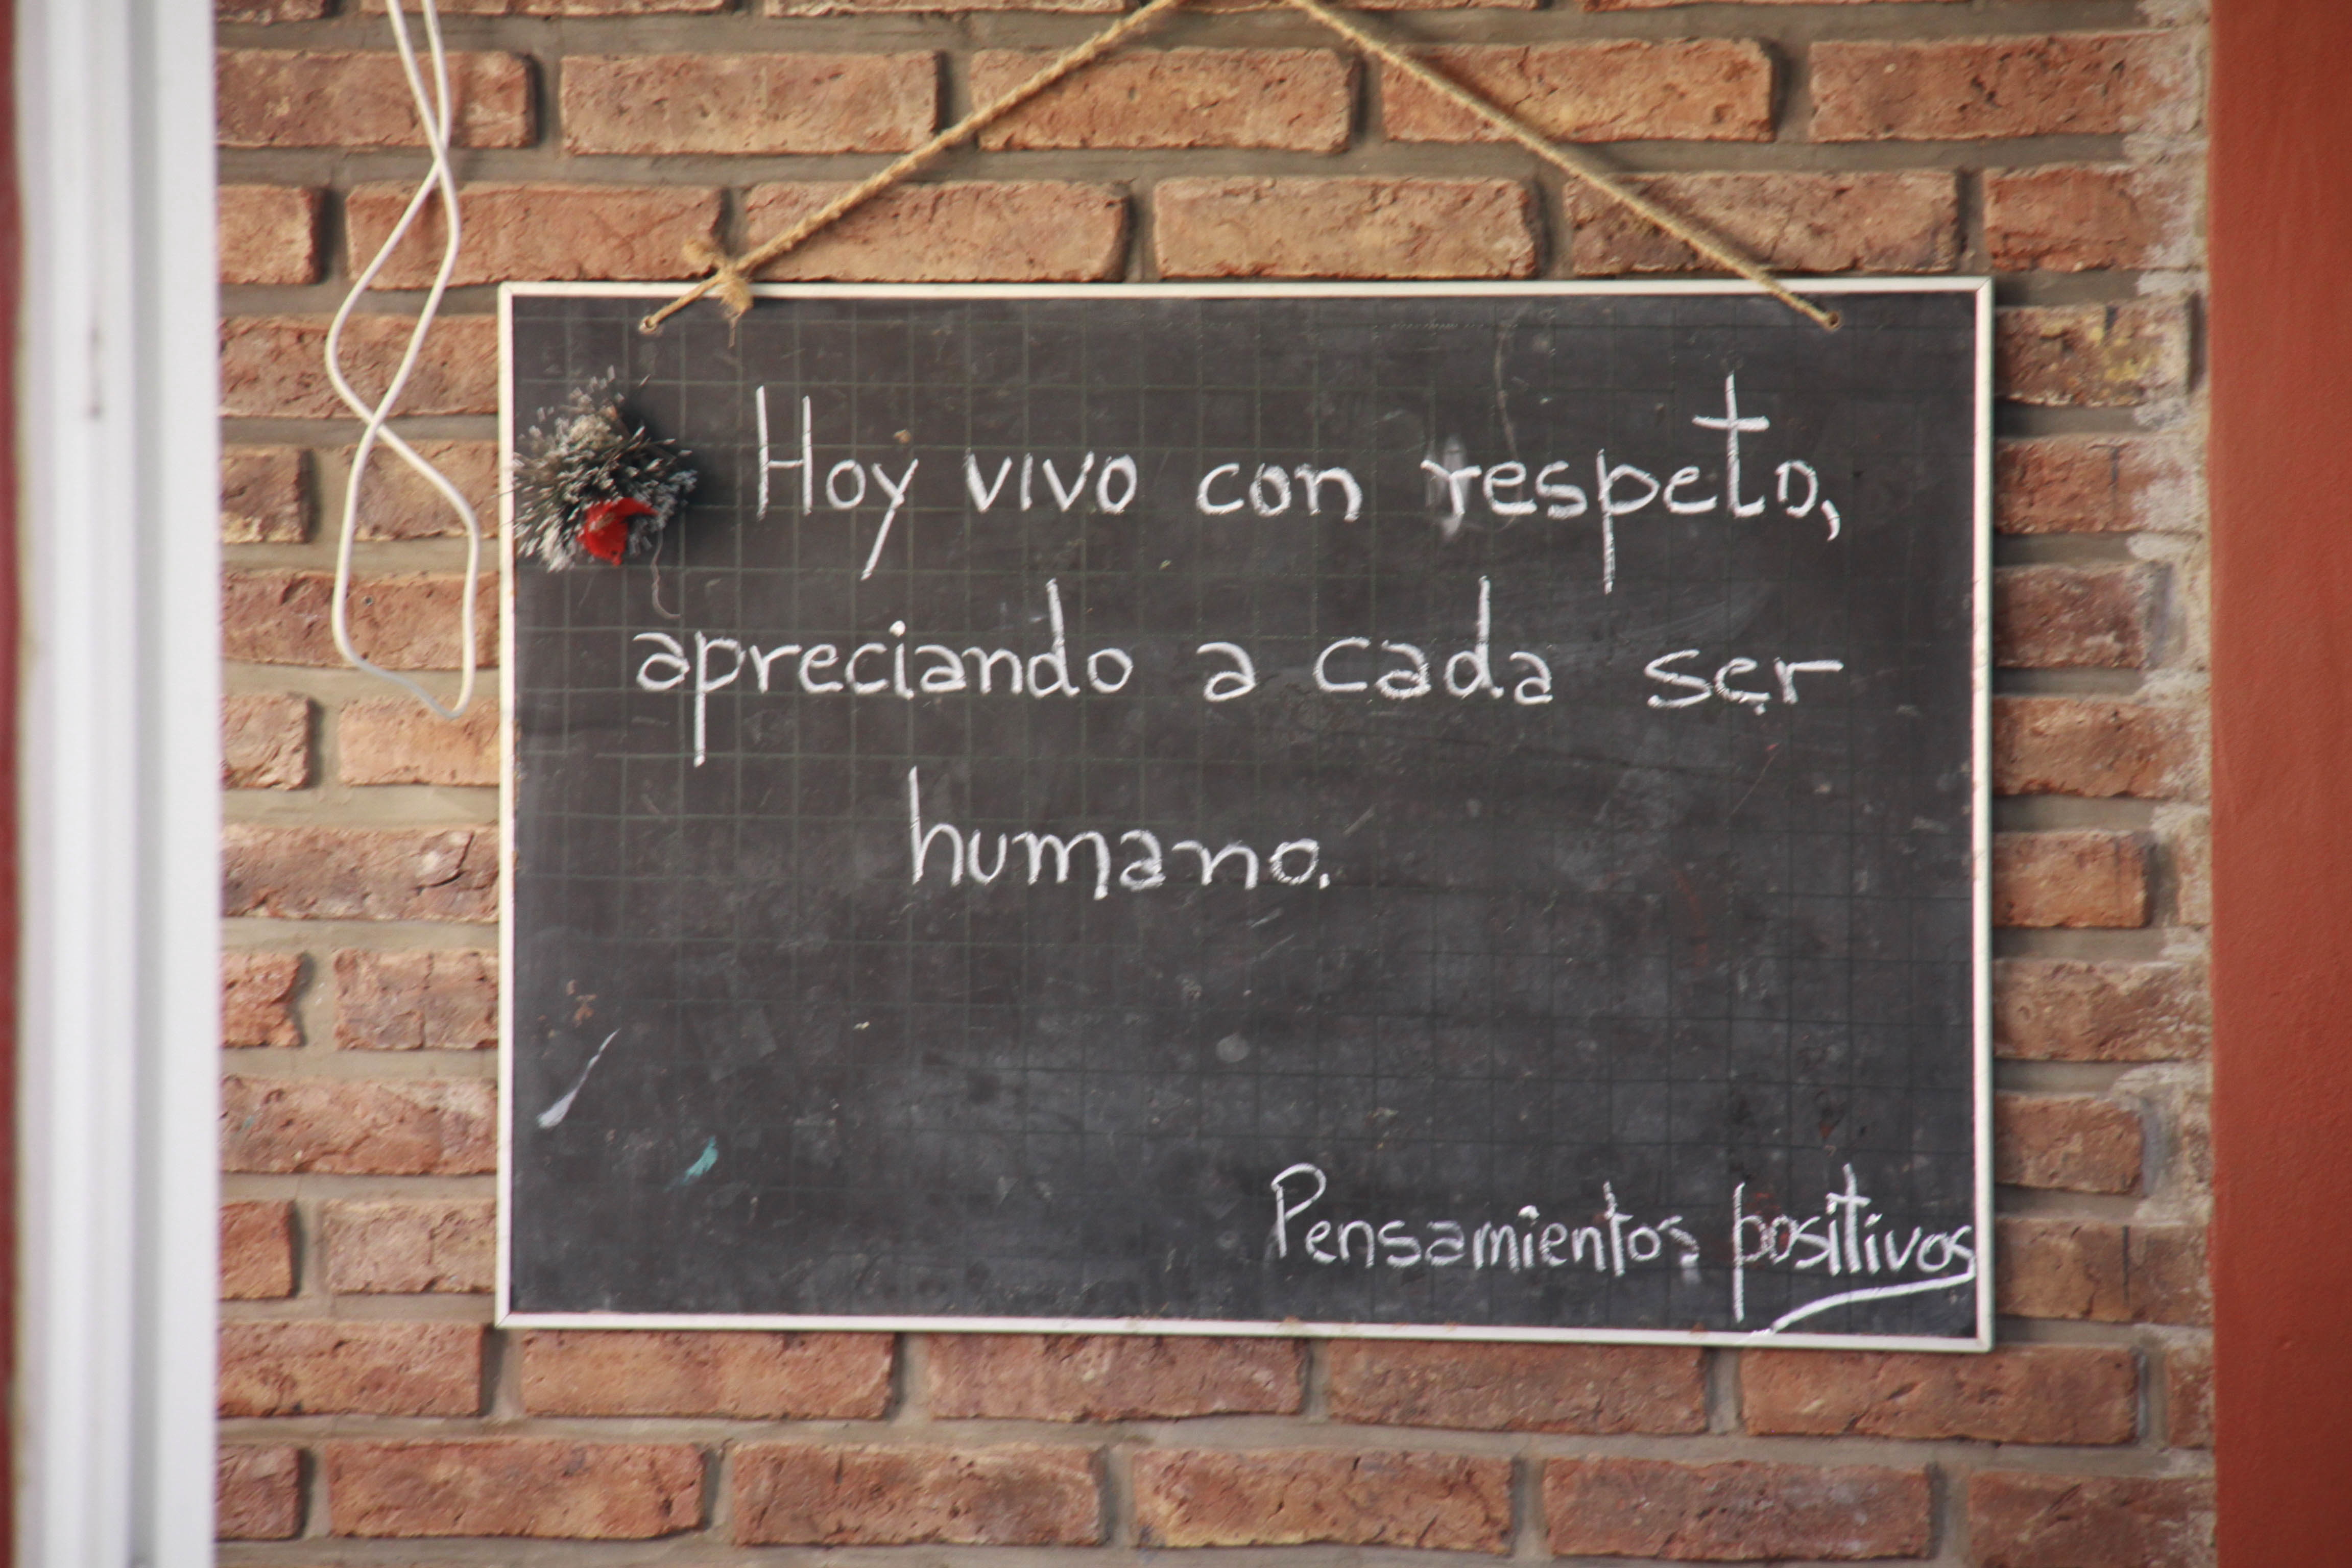 Hoy vivo con respeto,
apreciando a cada ser
humano.
Pensamientos positivos